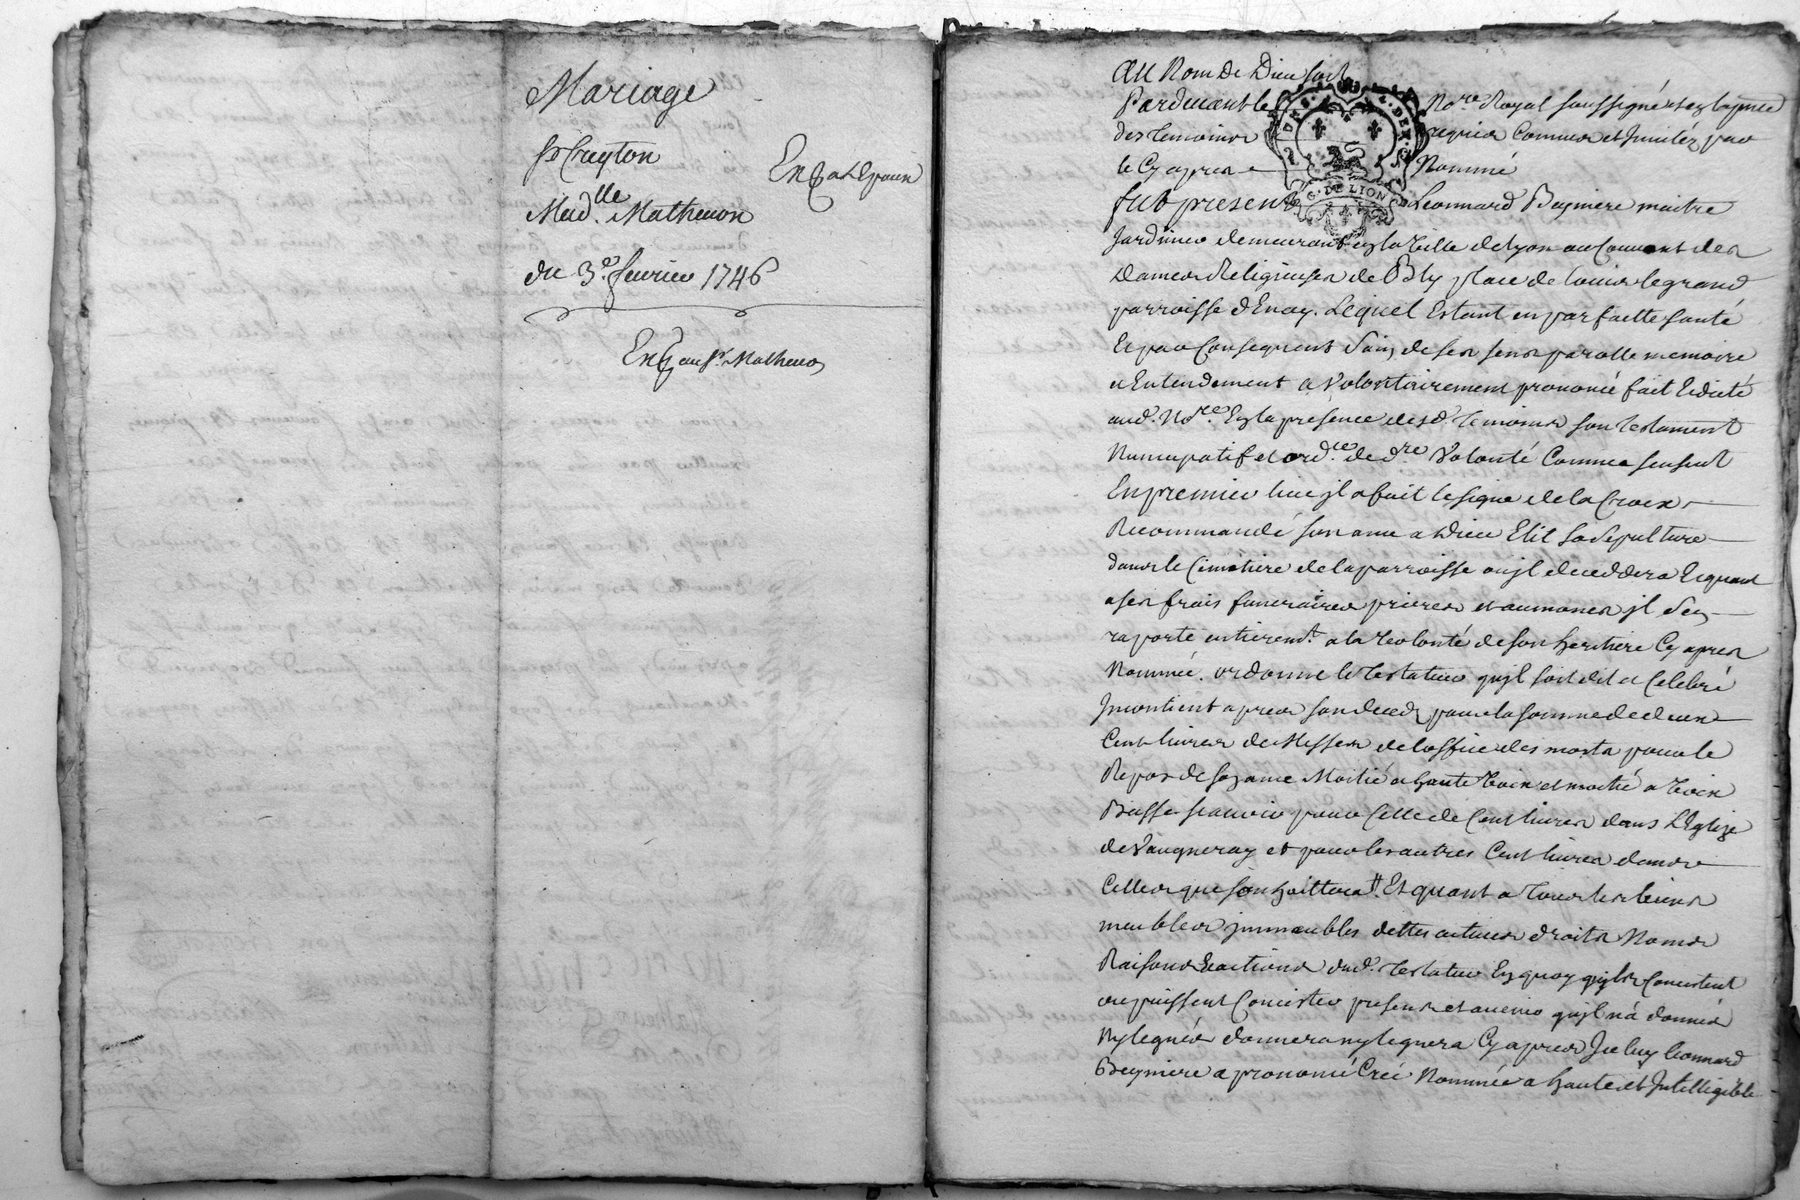 Mariage
Sr Creyton
Madlle. Matheuon
du 3e. feurier 1746
Exp au Sr. Matheuon
AU Nom de Dieu soit
Pardeuant le Nore. Royal soussigné et en la pnce
des temoins requis Connus et Inuités par
le Cy apres Nommé
fut present Leonnard Beyniere maitre
Jardinier demeurant en la Ville de Lyon au Couuent des
Dames Religieuses de Bly place de Louis le grand
parroisse d'Enay. Lequel Estant en parfaitte santé
Et par Consequent sain de ses sens parolle memoire
et Entendement a Volontairement prononcé fait Et dicté
aud. Nore. En la presence desd. temoins son testament
Nuncupatif et ordce. de dre Volonté Comme sensuit
En premier lieu jl a fait le signe de la Croix
Recommandé son ame a Dieu Elit sa sepulture
dans le Cimetiere de la parroisse ou jl deceddera Et quant
a ses frais funeraires prieres et aumones jl s'en
raporte entieremt. a la Volonté de son heritiere Cy apres
Nommée. ordonne le Testateur qu'jl soit dit et Celebré
Jncontient apres son decedz pour la somme de deux
Cent liures de Messes de loffice des morts pour le
Repos de son ame Moitié a haute Voix et moitié a Voix
Basse scauoir pour Celle de Cent liures dans L'Eglize
de Vaugneray et pour les autres Cent liures dans
Celles que souhaittera Et quant a Tous les biens
meubles jmmeubles dettes actiues droits Noms
Raisons Et actions dud. Testateur En quoy qu'jls Concistent
ou puissent Concister presents et auenir qu'jl n'a donnés
Ny legués donnera ny leguera Cy apres Jceluy Leonnard
Beyniere a prononcé Créé Nommée a haute et Jntelligible